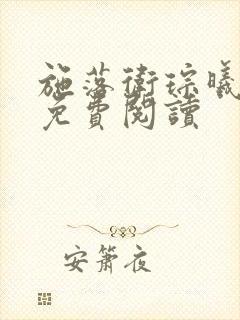 施落衛琮曦
免費閱讀
安簫夜